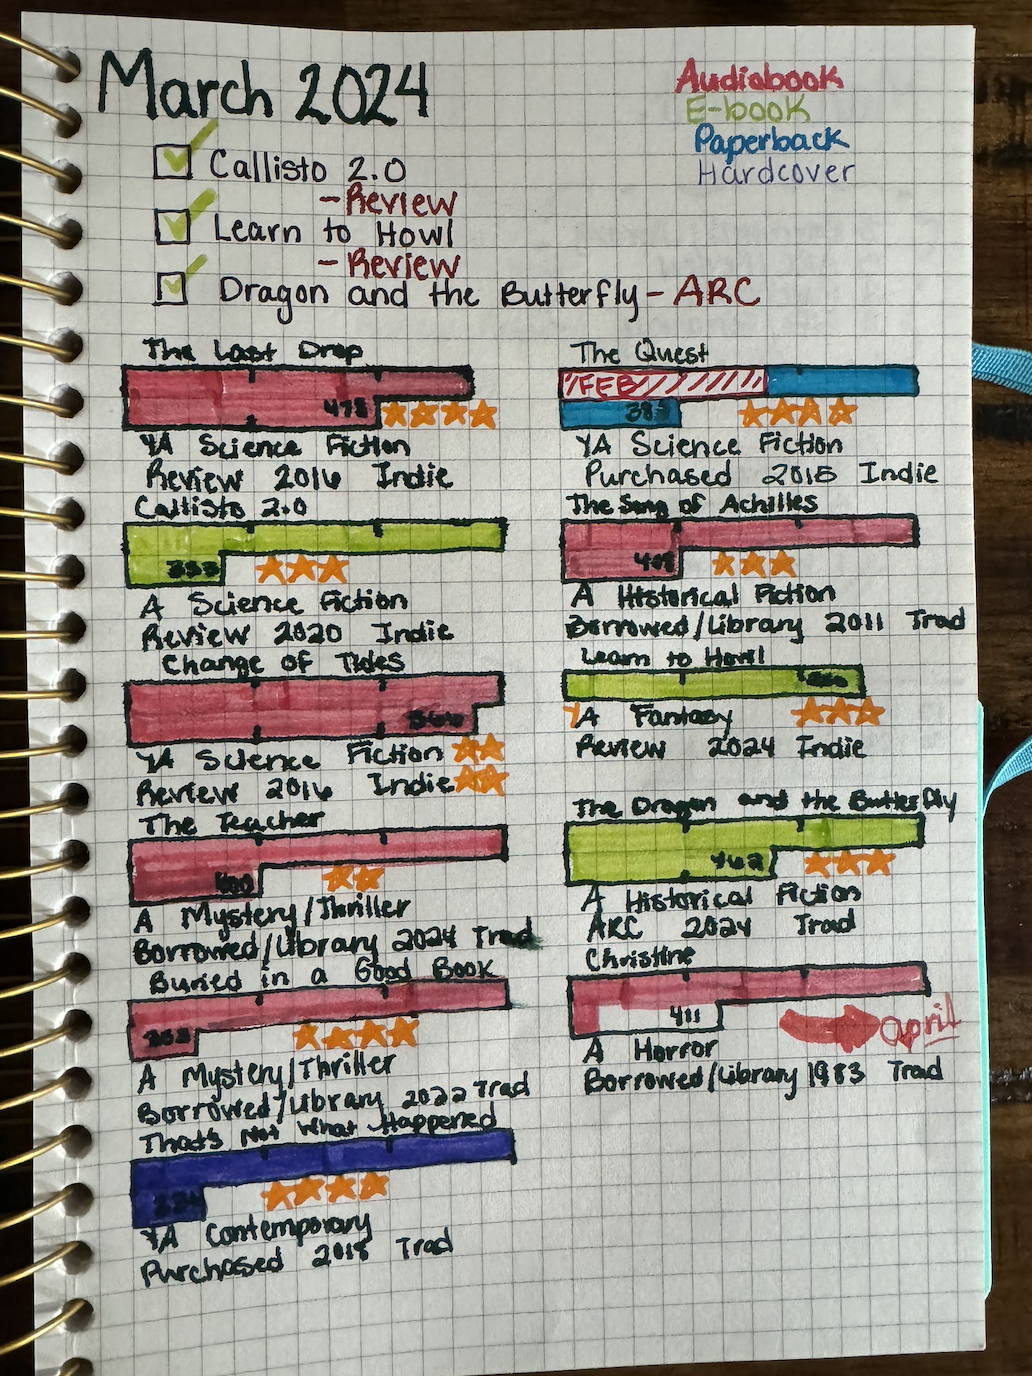 March 2024
Audiobook
E-book
Paperback
Hardcover
Callisto 2.0
- Review
Learn to Howl
- Review
Dragon and the Butterfly - ARC
The Last Drop
478
YA Science Fiction
Review 2016 Indie
Callisto 2.0
333
A Science Fiction
Review 2020 Indie
Change of Tides
YA Science Fiction
Review 2016 Indie
The Teacher
400
A Mystery/Thriller
Borrowed/Library 2024 Trad
Buried in a Good Book
353
A Mystery/Thriller
Borrowed/Library 2022 Trad
That's Not What Happened
YA Contemporary
Purchased 2018 Trad
The Quest
FEB
YA Science Fiction
Purchased 2015 Indie
The Song of Achilles
A Historical Fiction
Borrowed/Library 2011 Trad
Learn to Howl
YA Fantasy
Review 2024 Indie
The Dragon and the Butterfly
462
A Historical Fiction
ARC 2024 Trad
Christine
411
april
A Horror
Borrowed/Library 1983 Trad